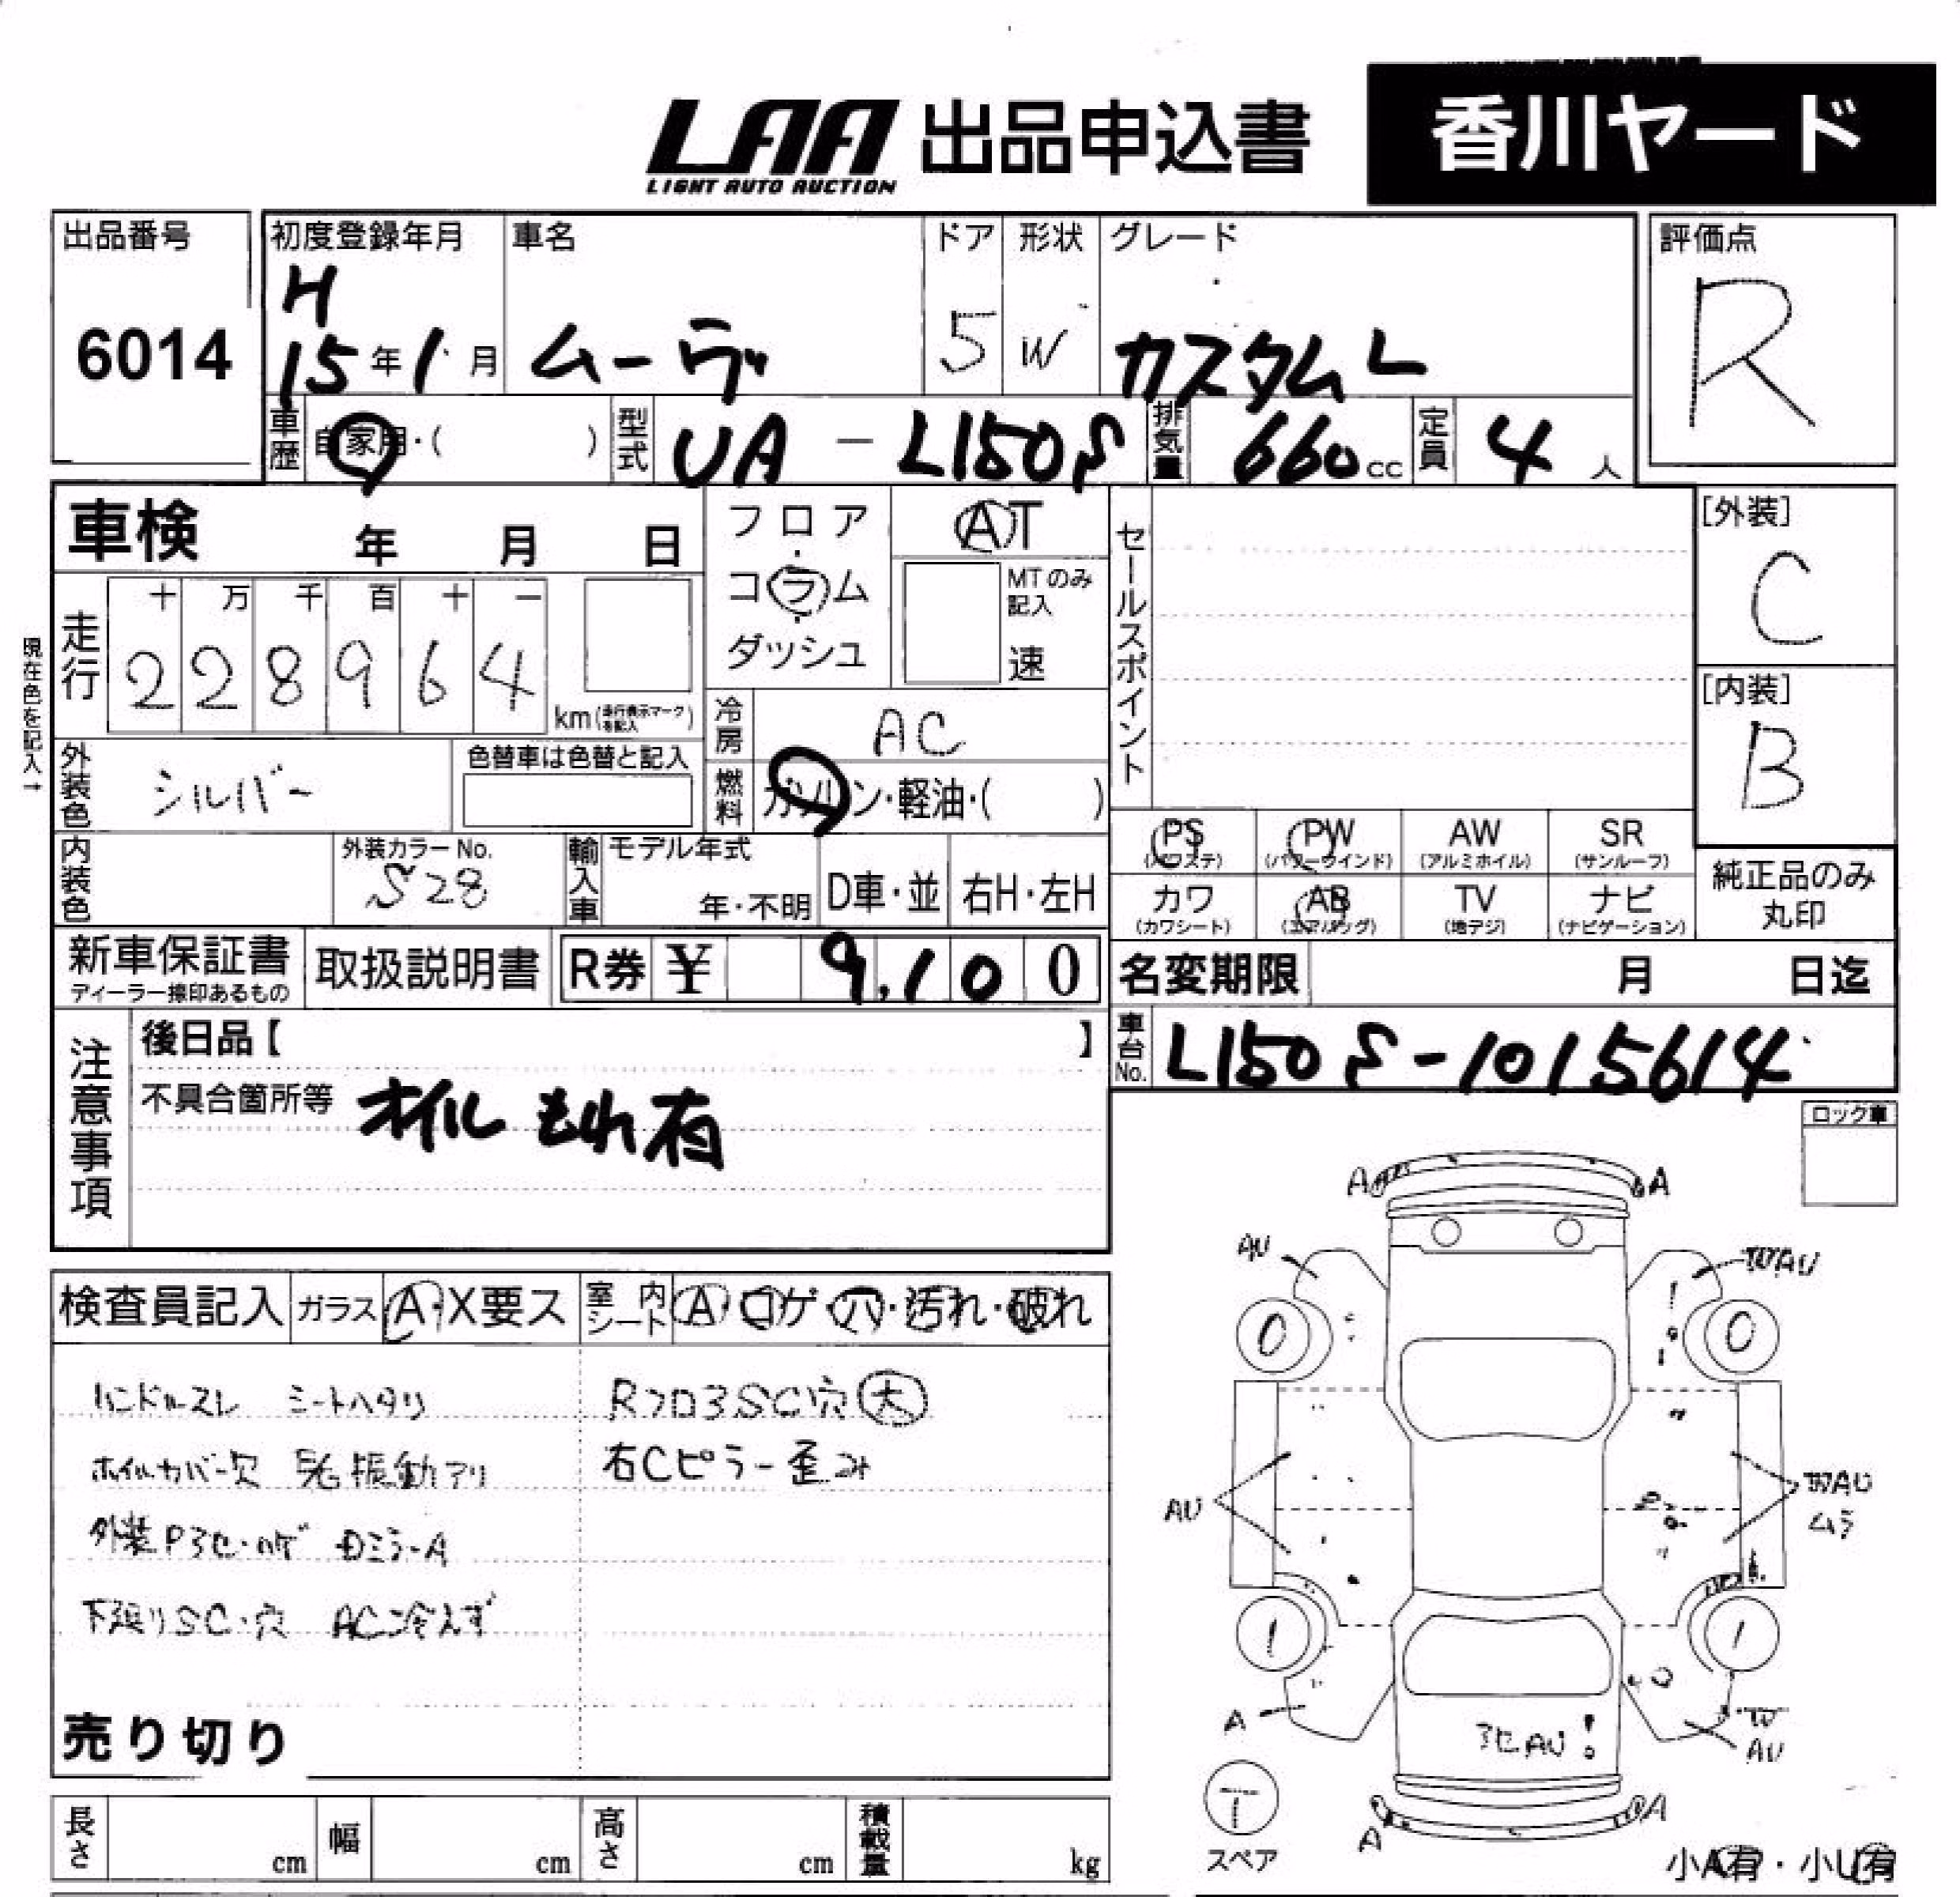 LAA 出品申込書 香川ヤード
LIGHT AUTO AUCTION
出品番号 初度登録年月 車名 ドア 形状 グレード 評価点
6014 H 15年1月 ムーヴ 5 W カスタムL R
車歴 自家用・( ) 型式 UA - L150S 排気量 660cc 定員 4人
車検 年 月 日 フロア AT セールスポイント [外装]
コラム MTのみ記入 C
ダッシュ 速
走行 十 万 千 百 十 一
228964 km (走行表示マークを記入)
現在色を記入→
冷房 AC [内装] B
外装色 シルバー 色替車は色替と記入 燃料 ガソリン・軽油・( )
PS (パワステ) PW (パワーウインド) AW (アルミホイル) SR (サンルーフ)
内装色 外装カラーNo. S28 輸入車 モデル年式 年・不明 D車・並 右H・左H
カワ (カワシート) AB (エアバッグ) TV (地デジ) ナビ (ナビゲーション)
純正品のみ丸印
新車保証書 ディーラー捺印あるもの 取扱説明書 R券 ¥ 9,100 名変期限 月 日迄
注意事項 後日品【 】 車台No. L150S-1015614
不具合箇所等 オイルもれ有
ロック車
A A
AU WAU
0 0
検査員記入 ガラス A・X要ス 室内シート A・コゲ・穴・汚れ・破れ
ハンドルスレ シートヘタリ RフロアSC穴 大
ホイルカバー欠 振動アリ 右Cピラー歪み
外装Pアセ・ハゲ DミラーA
下張りSC・穴 AC冷えず
AU WAU
ムラ
1 1
A W
AU
アセAU
売り切り
T
スペア
A A
長さ cm 幅 cm 高さ cm 積載量 kg
小A有・小U有